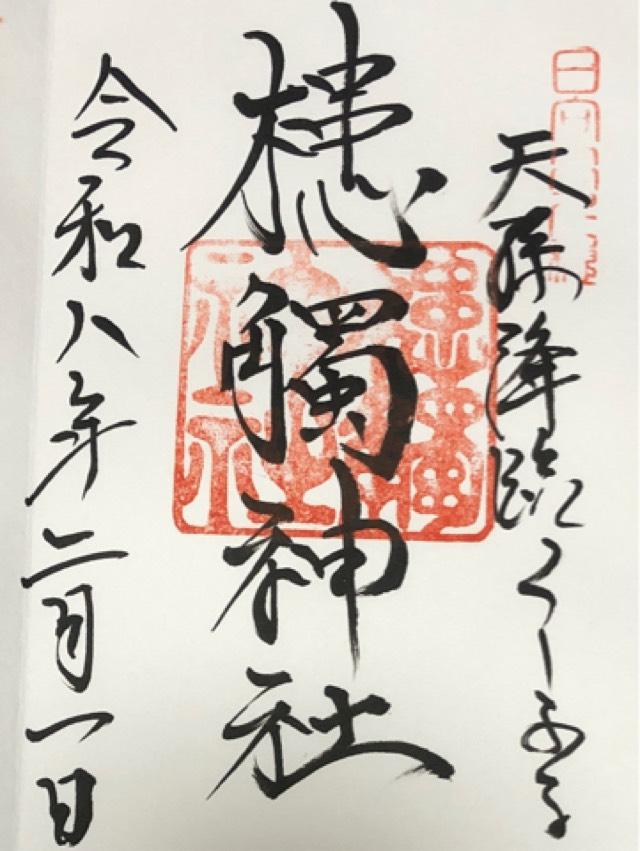 天孫降臨くしふる
槵觸神社
令和八年二月一日